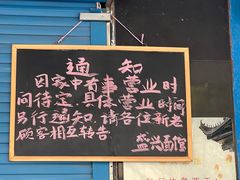 通知
因家中有事营业时
间待定.具体营业时间
另行通知.请各位新老
顾客相互转告
盛兴面馆